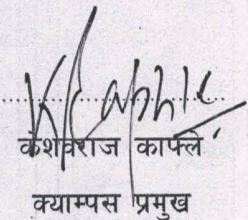 केशवराज काफ्ले
क्याम्पस प्रमुख